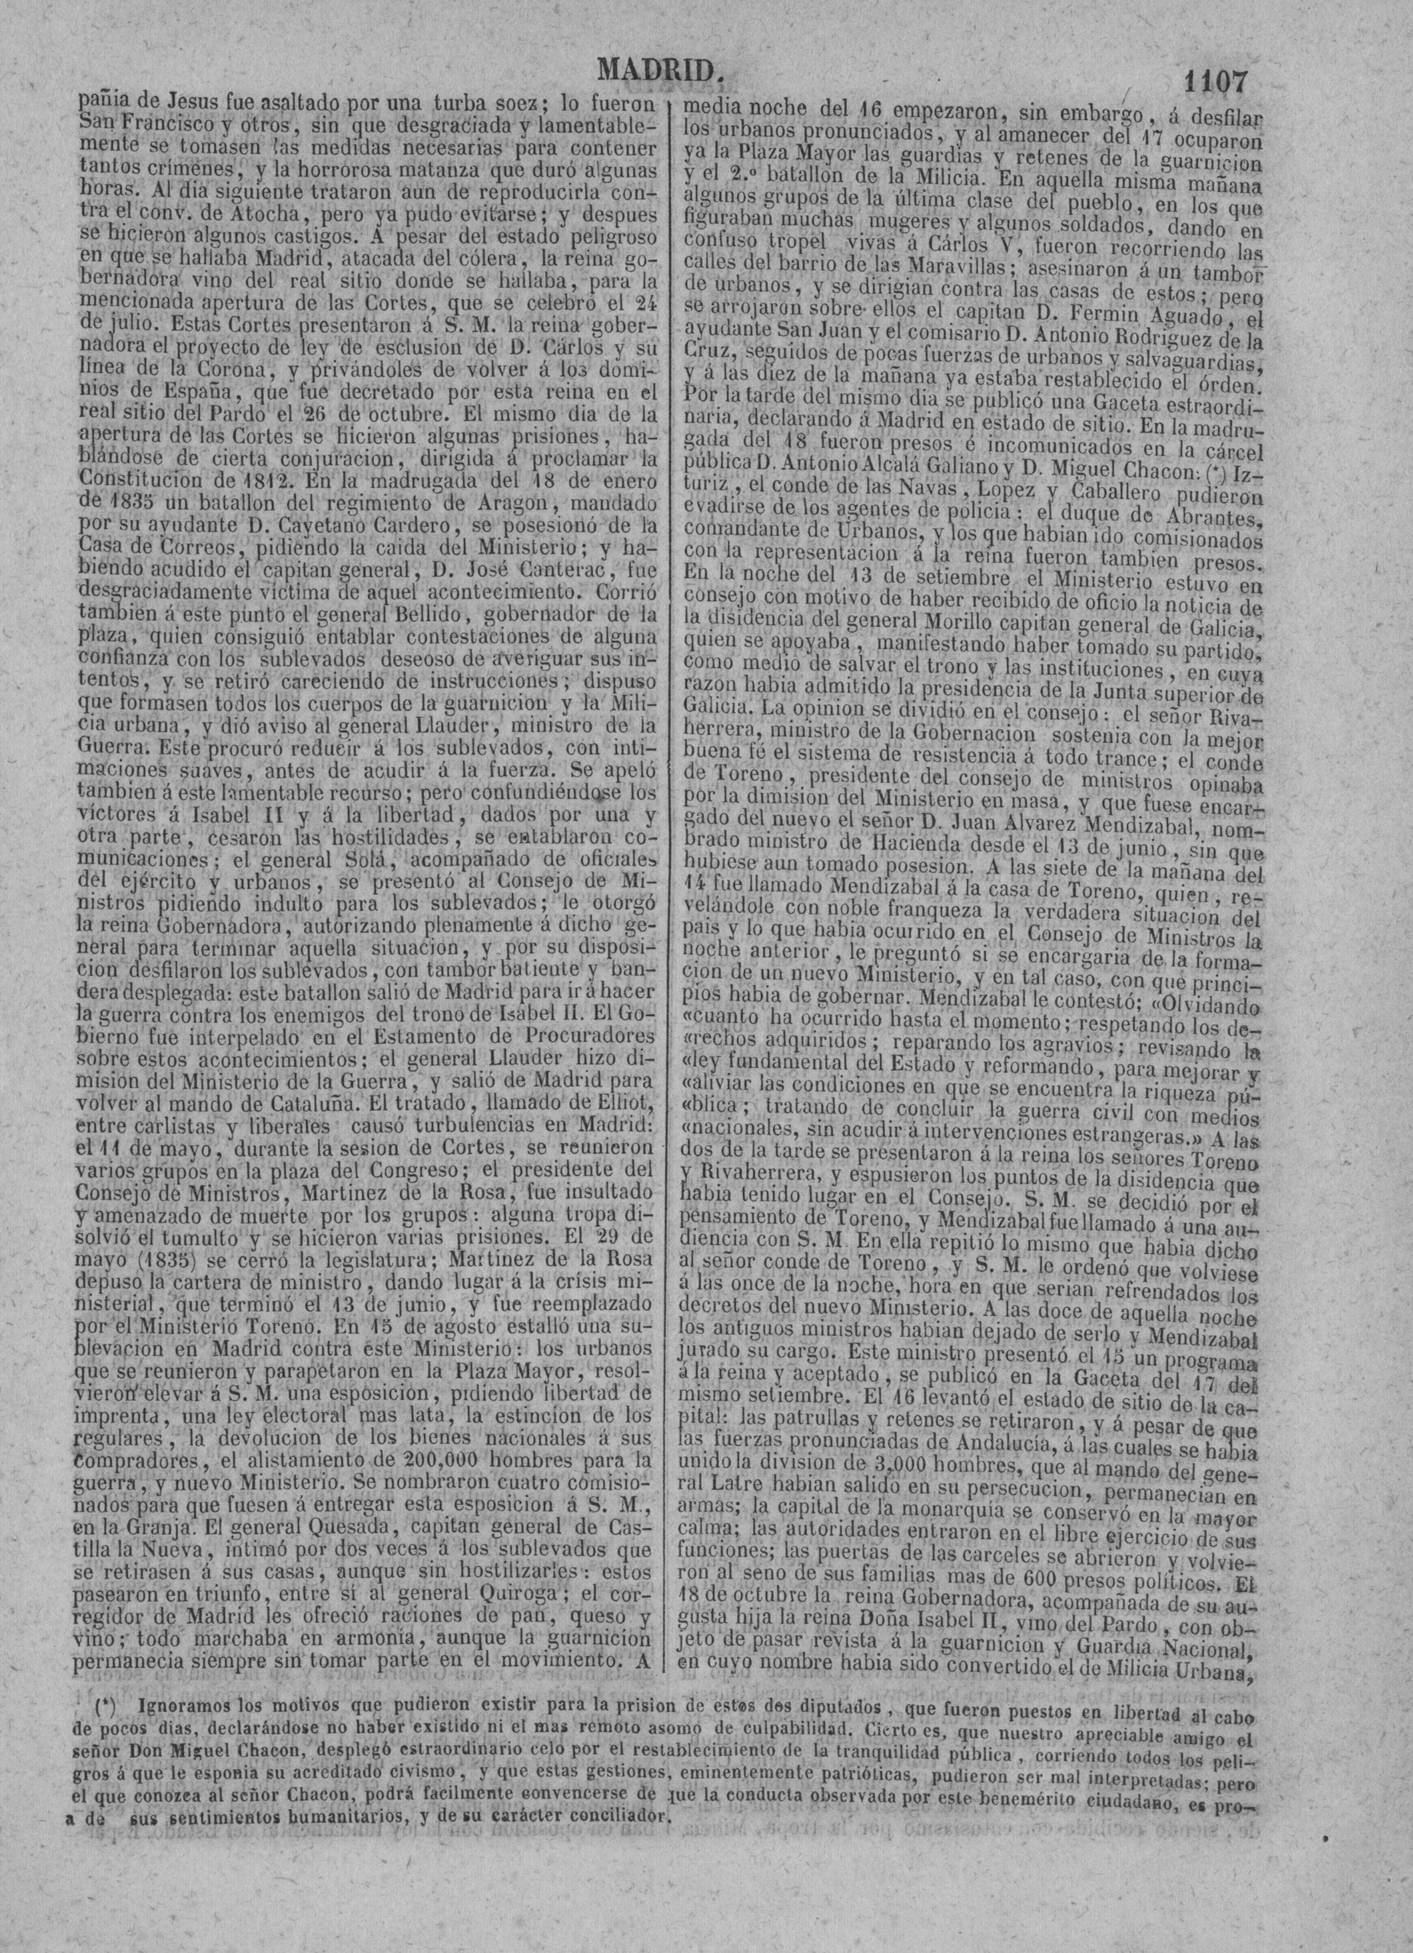 MADRID.
1107
pañia de Jesus fue asaltado por una turba soez; lo fueron
San Francisco y otros, sin que desgraciada y lamentable-
mente se tomasen las medidas necesarias para contener
tantos crímenes, y la horrorosa matanza que duró algunas
horas. Al dia siguiente trataron aun de reproducirla con-
tra el conv. de Atocha, pero ya pudo evitarse; y despues
se hicieron algunos castigos. A pesar del estado peligroso
en que se hallaba Madrid, atacada del cólera, la reina go-
bernadora vino del real sitio donde se hallaba, para la
mencionada apertura de las Cortes, que se celebró el 24
de julio. Estas Cortes presentaron á S. M. la reina gober-
nadora el proyecto de ley de esclusion de D. Cárlos y su
línea de la Corona, y privándoles de volver á los domi-
nios de España, que fue decretado por esta reina en el
real sitio del Pardo el 26 de octubre. El mismo dia de la
apertura de las Cortes se hicieron algunas prisiones, ha-
blándose de cierta conjuracion, dirigida á proclamar la
Constitucion de 1812. En la madrugada del 18 de enero
de 1835 un batallon del regimiento de Aragon, mandado
por su ayudante D. Cayetano Cardero, se posesionó de la
Casa de Correos, pidiendo la caida del Ministerio; y ha-
biendo acudido el capitan general, D. José Canterac, fue
desgraciadamente víctima de aquel acontecimiento. Corrió
tambien á este punto el general Bellido, gobernador de la
plaza, quien consiguió entablar contestaciones de alguna
confianza con los sublevados deseoso de averiguar sus in-
tentos, y se retiró careciendo de instrucciones; dispuso
que formasen todos los cuerpos de la guarnicion y la Mili-
cia urbana, y dió aviso al general Llauder, ministro de la
Guerra. Este procuró reducir á los sublevados, con inti-
maciones suaves, antes de acudir á la fuerza. Se apeló
tambien á este lamentable recurso; pero confundiéndose los
víctores á Isabel II y á la libertad, dados por una y
otra parte, cesaron las hostilidades, se entablaron co-
municaciones; el general Solá, acompañado de oficiales
del ejército y urbanos, se presentó al Consejo de Mi-
nistros pidiendo indulto para los sublevados; le otorgó
la reina Gobernadora, autorizando plenamente á dicho ge-
neral para terminar aquella situacion, y por su disposi-
cion desfilaron los sublevados, con tambor batiente y ban-
dera desplegada: este batallon salió de Madrid para ir á hacer
la guerra contra los enemigos del trono de Isabel II. El Go-
bierno fue interpelado en el Estamento de Procuradores
sobre estos acontecimientos; el general Llauder hizo di-
mision del Ministerio de la Guerra, y salió de Madrid para
volver al mando de Cataluña. El tratado, llamado de Elliot,
entre carlistas y liberales causó turbulencias en Madrid:
el 11 de mayo, durante la sesion de Cortes, se reunieron
varios grupos en la plaza del Congreso; el presidente del
Consejo de Ministros, Martinez de la Rosa, fue insultado
y amenazado de muerte por los grupos: alguna tropa di-
solvió el tumulto y se hicieron varias prisiones. El 29 de
mayo (1835) se cerró la legislatura; Martinez de la Rosa
depuso la cartera de ministro, dando lugar á la crísis mi-
nisterial, que terminó el 13 de junio, y fue reemplazado
por el Ministerio Toreno. En 15 de agosto estalló una su-
blevacion en Madrid contra este Ministerio: los urbanos
que se reunieron y parapetaron en la Plaza Mayor, resol-
vieron elevar á S. M. una esposicion, pidiendo libertad de
imprenta, una ley electoral mas lata, la estincion de los
regulares, la devolucion de los bienes nacionales á sus
compradores, el alistamiento de 200,000 hombres para la
guerra, y nuevo Ministerio. Se nombraron cuatro comisio-
nados para que fuesen á entregar esta esposicion á S. M.,
en la Granja. El general Quesada, capitan general de Cas-
tilla la Nueva, intimó por dos veces á los sublevados que
se retirasen á sus casas, aunque sin hostilizarles: estos
pasearon en triunfo, entre sí al general Quiroga; el cor-
regidor de Madrid les ofreció raciones de pan, queso y
vino; todo marchaba en armonía, aunque la guarnicion
permanecia siempre sin tomar parte en el movimiento. A
media noche del 16 empezaron, sin embargo, á desfilar
los urbanos pronunciados, y al amanecer del 17 ocuparon
ya la Plaza Mayor las guardias y retenes de la guarnicion
y el 2.º batallon de la Milicia. En aquella misma mañana
algunos grupos de la última clase del pueblo, en los que
figuraban muchas mugeres y algunos soldados, dando en
confuso tropel vivas á Cárlos V, fueron recorriendo las
calles del barrio de las Maravillas; asesinaron á un tambor
de urbanos, y se dirigian contra las casas de estos; pero
se arrojaron sobre ellos el capitan D. Fermin Aguado, el
ayudante San Juan y el comisario D. Antonio Rodriguez de la
Cruz, seguidos de pocas fuerzas de urbanos y salvaguardias,
y á las diez de la mañana ya estaba restablecido el órden.
Por la tarde del mismo dia se publicó una Gaceta estraordi-
naria, declarando á Madrid en estado de sitio. En la madru-
gada del 18 fueron presos é incomunicados en la cárcel
pública D. Antonio Alcalá Galiano y D. Miguel Chacon: (*) Iz-
turiz, el conde de las Navas, Lopez y Caballero pudieron
evadirse de los agentes de policía: el duque de Abrantes,
comandante de Urbanos, y los que habian ido comisionados
con la representacion á la reina fueron tambien presos.
En la noche del 13 de setiembre el Ministerio estuvo en
consejo con motivo de haber recibido de oficio la noticia de
la disidencia del general Morillo capitan general de Galicia,
quien se apoyaba, manifestando haber tomado su partido,
como medio de salvar el trono y las instituciones, en cuya
razon habia admitido la presidencia de la Junta superior de
Galicia. La opinion se dividió en el consejo: el señor Riva-
herrera, ministro de la Gobernacion sostenia con la mejor
buena fé el sistema de resistencia á todo trance; el conde
de Toreno, presidente del consejo de ministros opinaba
por la dimision del Ministerio en masa, y que fuese encar-
gado del nuevo el señor D. Juan Alvarez Mendizabal, nom-
brado ministro de Hacienda desde el 13 de junio, sin que
hubiese aun tomado posesion. A las siete de la mañana del
14 fue llamado Mendizabal á la casa de Toreno, quien, re-
velándole con noble franqueza la verdadera situacion del
pais y lo que habia ocurrido en el Consejo de Ministros la
noche anterior, le preguntó si se encargaria de la forma-
cion de un nuevo Ministerio, y en tal caso, con qué princi-
pios habia de gobernar. Mendizabal le contestó; «Olvidando
«cuanto ha ocurrido hasta el momento; respetando los de-
«rechos adquiridos; reparando los agravios; revisando la
«ley fundamental del Estado y reformando, para mejorar y
«aliviar las condiciones en que se encuentra la riqueza pú-
«blica; tratando de concluir la guerra civil con medios
«nacionales, sin acudir á intervenciones estrangeras.» A las
dos de la tarde se presentaron á la reina los señores Toreno
y Rivaherrera, y espusieron los puntos de la disidencia que
habia tenido lugar en el Consejo. S. M. se decidió por el
pensamiento de Toreno, y Mendizabal fue llamado á una au-
diencia con S. M. En ella repitió lo mismo que habia dicho
al señor conde de Toreno, y S. M. le ordenó que volviese
á las once de la noche, hora en que serian refrendados los
decretos del nuevo Ministerio. A las doce de aquella noche
los antiguos ministros habian dejado de serlo y Mendizabal
jurado su cargo. Este ministro presentó el 15 un programa
á la reina y aceptado, se publicó en la Gaceta del 17 del
mismo setiembre. El 16 levantó el estado de sitio de la ca-
pital: las patrullas y retenes se retiraron, y á pesar de que
las fuerzas pronunciadas de Andalucía, á las cuales se habia
unido la division de 3,000 hombres, que al mando del gene-
ral Latre habian salido en su persecucion, permanecian en
armas; la capital de la monarquía se conservó en la mayor
calma; las autoridades entraron en el libre ejercicio de sus
funciones; las puertas de las carceles se abrieron y volvie-
ron al seno de sus familias mas de 600 presos políticos. El
18 de octubre la reina Gobernadora, acompañada de su au-
gusta hija la reina Doña Isabel II, vino del Pardo, con ob-
jeto de pasar revista á la guarnicion y Guardia Nacional,
en cuyo nombre habia sido convertido el de Milicia Urbana,
(*) Ignoramos los motivos que pudieron existir para la prision de estos dos diputados, que fueron puestos en libertad al cabo
de pocos dias, declarándose no haber existido ni el mas remoto asomo de culpabilidad. Cierto es, que nuestro apreciable amigo el
señor Don Miguel Chacon, desplegó estraordinario celo por el restablecimiento de la tranquilidad pública, corriendo todos los peli-
gros á que le esponia su acreditado civismo, y que estas gestiones, eminentemente patrióticas, pudieron ser mal interpretadas; pero
el que conozca al señor Chacon, podrá facilmente convencerse de que la conducta observada por este benemérito ciudadano, es pro-
a de sus sentimientos humanitarios, y de su carácter conciliador.